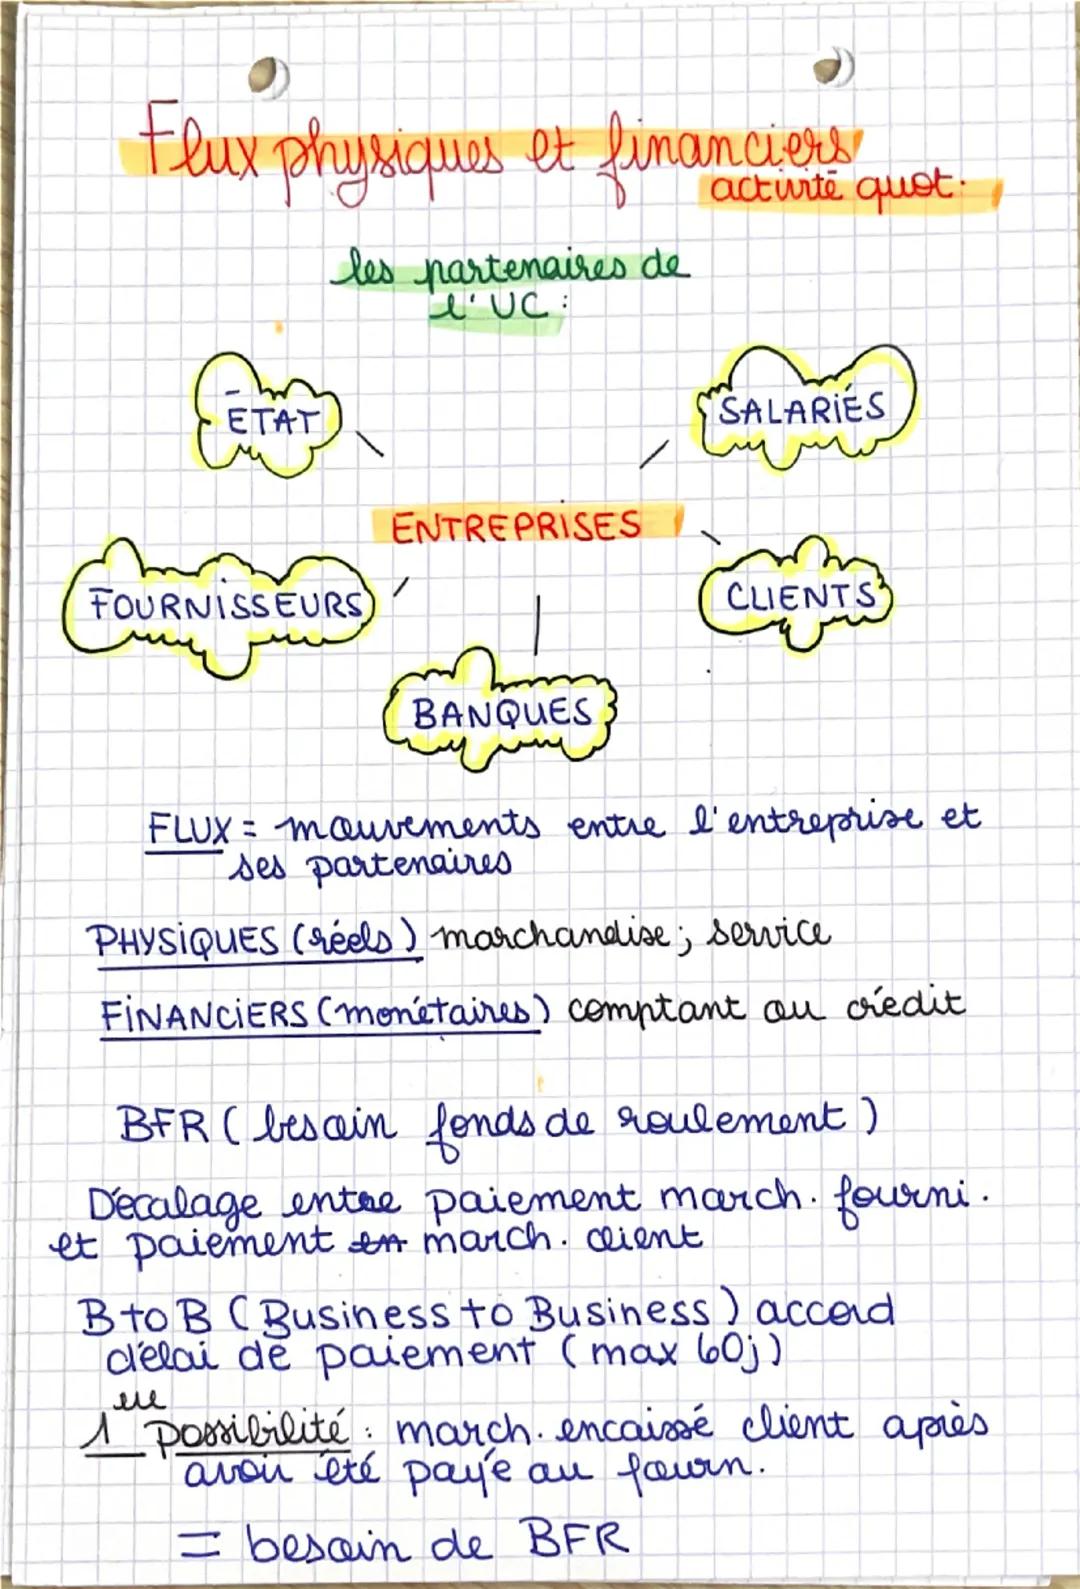 Flux physiques et financiers
activité quot.
les partenaires de
l'UC :
ÉTAT
SALARIÉS
ENTREPRISES
FOURNISSEURS
CLIENTS
BANQUES
FLUX = mouvements entre l'entreprise et
ses partenaires
PHYSIQUES (réels) marchandise ; service
FINANCIERS (monétaires) comptant ou crédit
BFR ( besoin fonds de roulement )
Décalage entre paiement march. fourni.
et paiement en march. client
B to B ( Business to Business ) accord
délai de paiement ( max 60j )
1ère possibilité : march. encaissé client après
avoir été payé au fourn.
= besoin de BFR